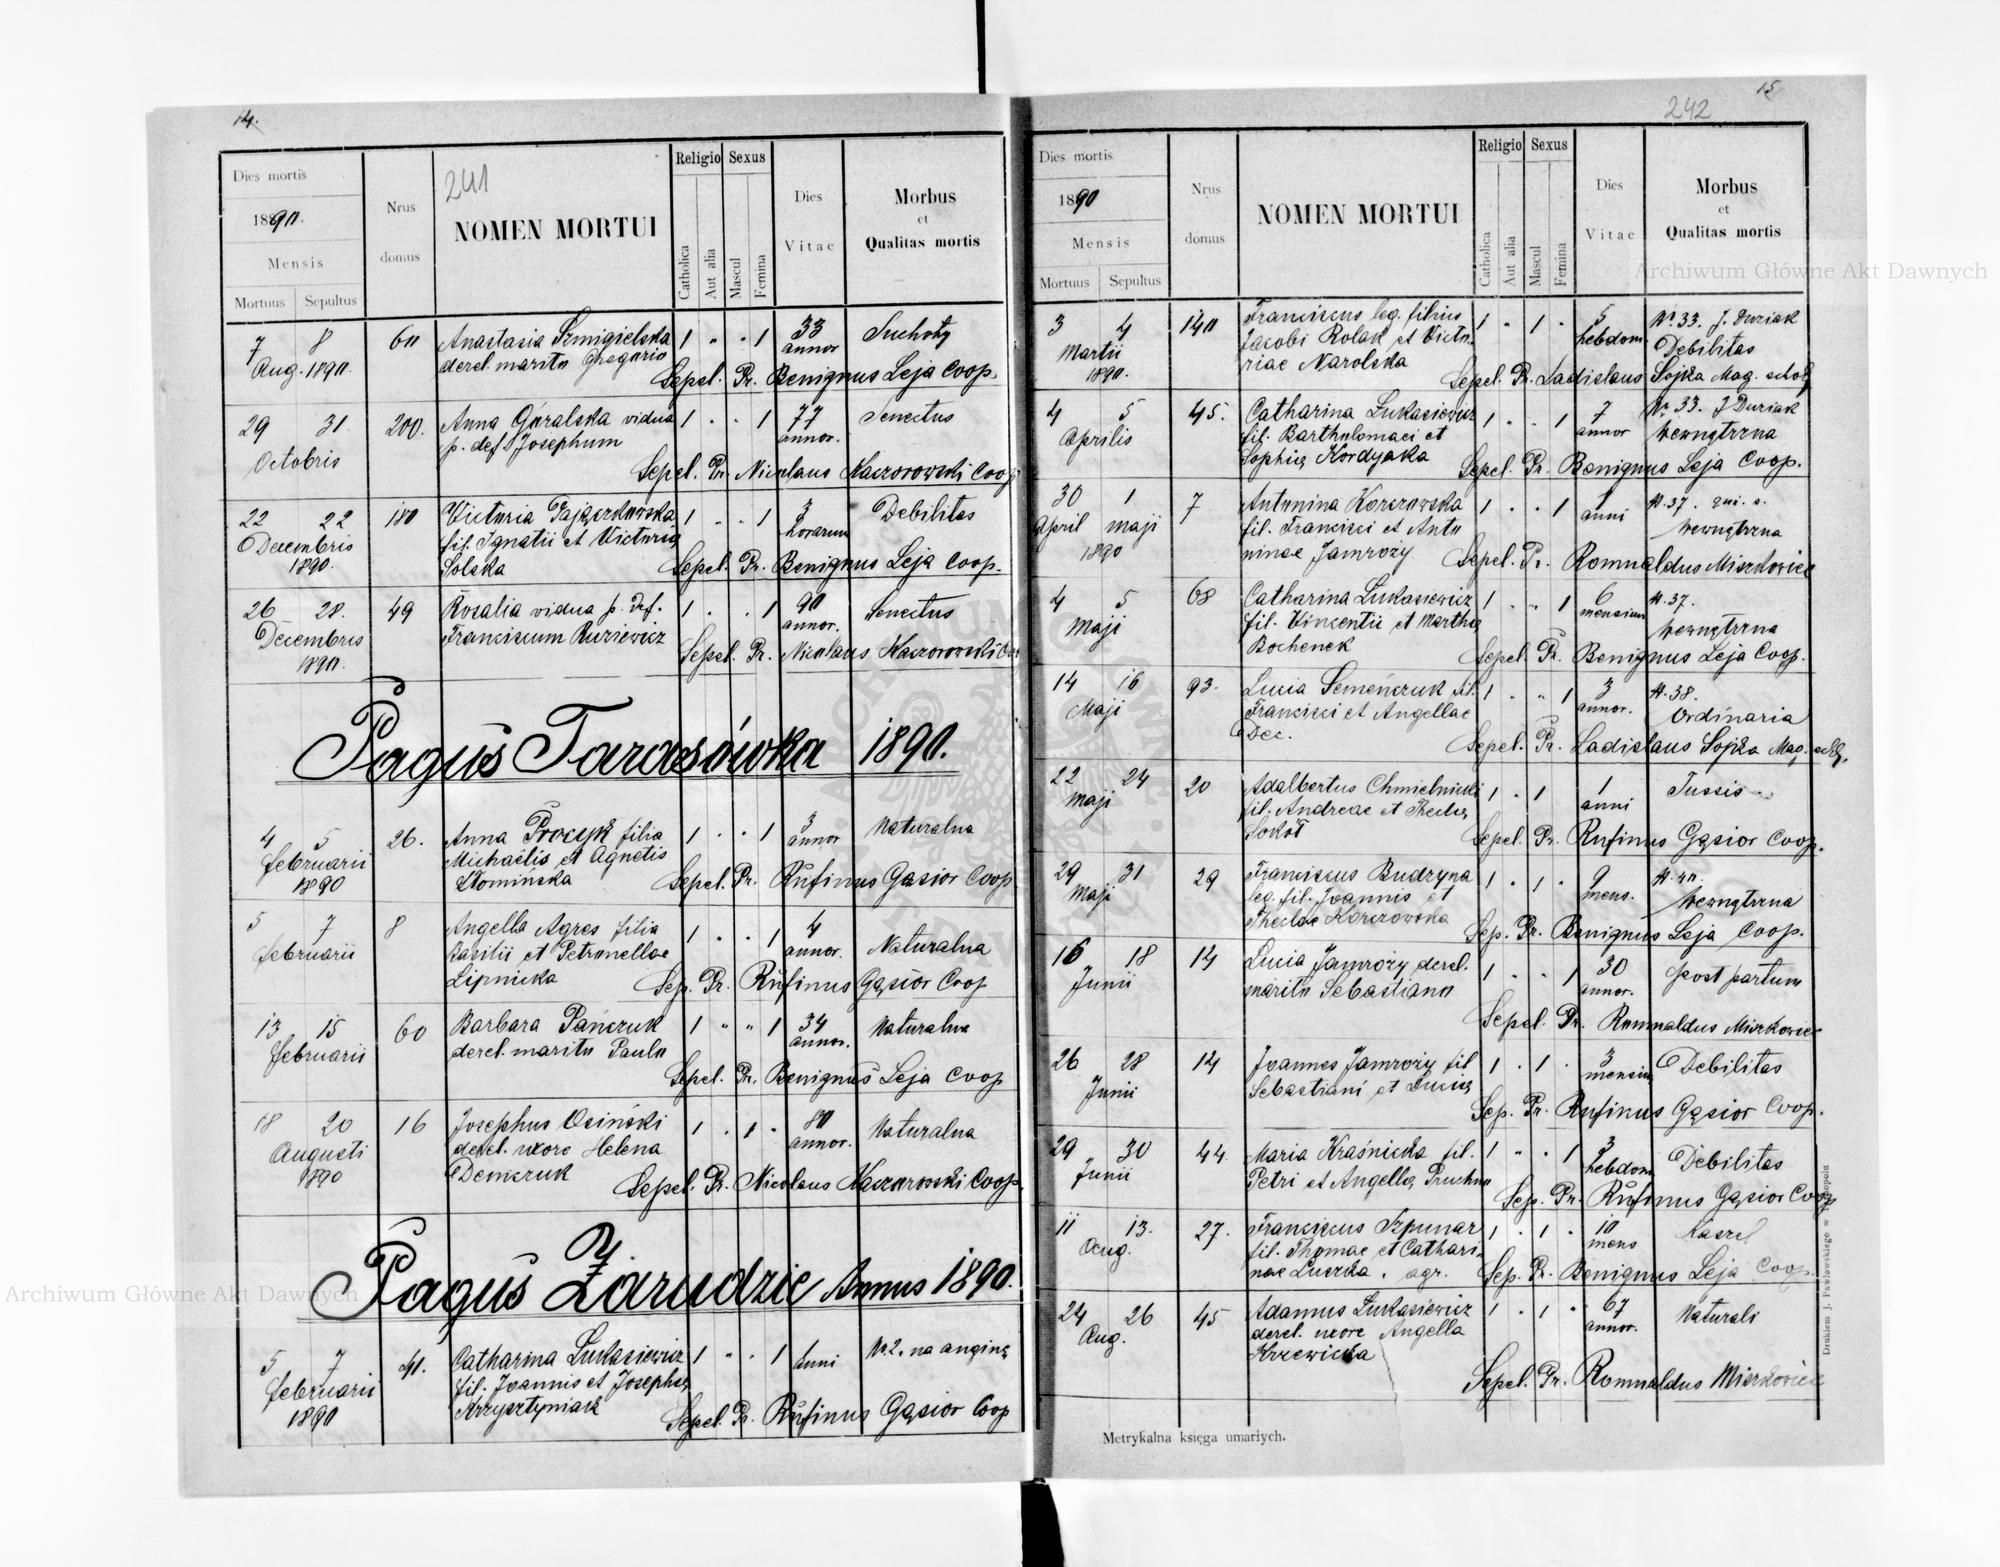 14.
241
Dies mortis
1890.
Mensis
Mortuus Sepultus
Nrus
domus
NOMEN MORTUI
Religio
Catholica
Aut alia
Sexus
Mascul
Femina
Dies
Vitae
Morbus
et
Qualitas mortis
7 8 60 Anastasia Szmigielska 1 " " 1 33 Suchoty
Aug. 1890. derel. marito Gregorio annor
Sepel. Pr. Benignus Leja Coop.
29 31 200. Anna Góralska vidua 1 . . 1 77 Senectus
Octobris p. def. Josephum annor.
Sepel. Pr. Nicolaus Kaczorowski Coop.
22 22 180 Victoria 1 . . 1 3 Debilitas
Decembris fil. Ignatii et Victoria horarum
1890. Solska Sepel. Pr. Benignus Leja Coop.
26 28. 49 Rosalia vidua p. def. 1 . . 1 90 Senectus
Decembris Franciscum Ruziewicz annor.
1890. Sepel. Pr. Nicolaus Kaczorowski
Pagus Tarasówka 1890.
4 5 26. Anna Procyk filia 1 . . 1 3 Naturalna
Februarii Michaelis et Agnetis annor
1890 Słomińska Sepel. Pr. Rufinus Gąsior Coop
5 7 8 Angella Agres filia 1 . . 1 4
Februarii Basilii et Petronellae annor. Naturalna
Lipnicka Sep. Pr. Rufinus Gąsior Coop
13 15 60 Barbara Pańczuk 1 " " 1 34 Naturalna
Februarii derel. marito Paulo annor.
Sepel. Pr. Benignus Leja Coop
18 20 16 Josephus Osiński 1 . 1 . 80 Naturalna
Augusti derel. uxore Helena annor.
1890 Demczuk Sepel. Pr. Nicolaus Kaczorowski Coop.
Pagus Zarudzie Annus 1890.
5 7 41. Catharina Łukasiewicz 1 . . 1 1 Nr. 2. na anginę
Februarii fil. Joannis et Josepha anni
1890 Krzysztyniak Sepel. Pr. Rufinus Gąsior Coop
15
242
Dies mortis
1890
Mensis
Mortuus Sepultus
Nrus
domus
NOMEN MORTUI
Religio
Catholica
Aut alia
Sexus
Mascul
Femina
Dies
Vitae
Morbus
et
Qualitas mortis
3 4 140 Franciscus leg. filius 1 . 1 . 5 Nr. 33. J. Duziak
Martii Jacobi Rolak et Victo hebdom. Debilitas
1890. riae Narolska Sepel. Pr. Ladislaus Sojka Mag. schol.
4 5 45. Catharina Łukasiewicz 1 . . 1 7 Nr. 33. J Duziak
Aprilis fil. Bartholomaei et annor Wewnętrzna
Sophia Kordyaka Sepel. Pr. Benignus Leja Coop.
30 1 7 Antonina Korczowska 1 . . 1 1 N. 37.
April maji fil. Francisci et Anto anni Wewnętrzna
1890 ninae Jamroży Sepel. Pr. Romualdus
4 5 68 Catharina Łukasiewicz 1 . . 1 6 N. 37.
Maji fil. Vincentii et Martha mensium Wewnętrzna
Bochenek Sepel. Pr. Benignus Leja Coop.
14 16 93. Lucia Semeńczuk fil. 1 . . 1 3 N. 38.
Maji Francisci et Angellae annor. Ordinaria
Dec. Sepel. Pr. Ladislaus Sojka Mag. schol.
22 24 20 Adalbertus Chmielnicki 1 . 1 1 Tussis
Maji fil. Andreae et Thecla anni
Sokół Sepel. Pr. Rufinus Gąsior Coop.
29 31 29 Franciscus Budzyna 1 . 1 . 9 N. 40.
Maji leg. fil. Joannis et mens. Wewnętrzna
Theclae Korczowska Sep. Pr. Benignus Leja Coop.
16 18 14 Lucia Jamroży derel. 1 . . 1 30 post partum
Junii marito Sebastiano annor.
Sepel. Pr. Romualdus
26 28 14 Joannes Jamroży fil 1 . 1 . 3 Debilitas
Junii Sebastiani et Lucia mensium
Sep. Pr. Rufinus Gąsior Coop.
29 30 44 Maria Kraśnicka fil. 1 " . 1 3 Debilitas
Junii Petri et Angella hebdom
Sep. Pr. Rufinus Gąsior Coop
11 13. 27. Franciscus Szpunar 1 . 1 . 10 Kaszel
Aug. fil. Thomae et Cathari- mens
nae Luczka . agr. Sep. Pr. Benignus Leja Coop.
24 26 45 Adamus Łukasiewicz 1 . 1 . 67 Naturali
Aug. derel. uxore Angella annor.
Krzewicka
Sepel. Pr. Romualdus
Metrykalna księga umarłych.
Archiwum Główne Akt Dawnych
Archiwum Główne Akt Dawnych